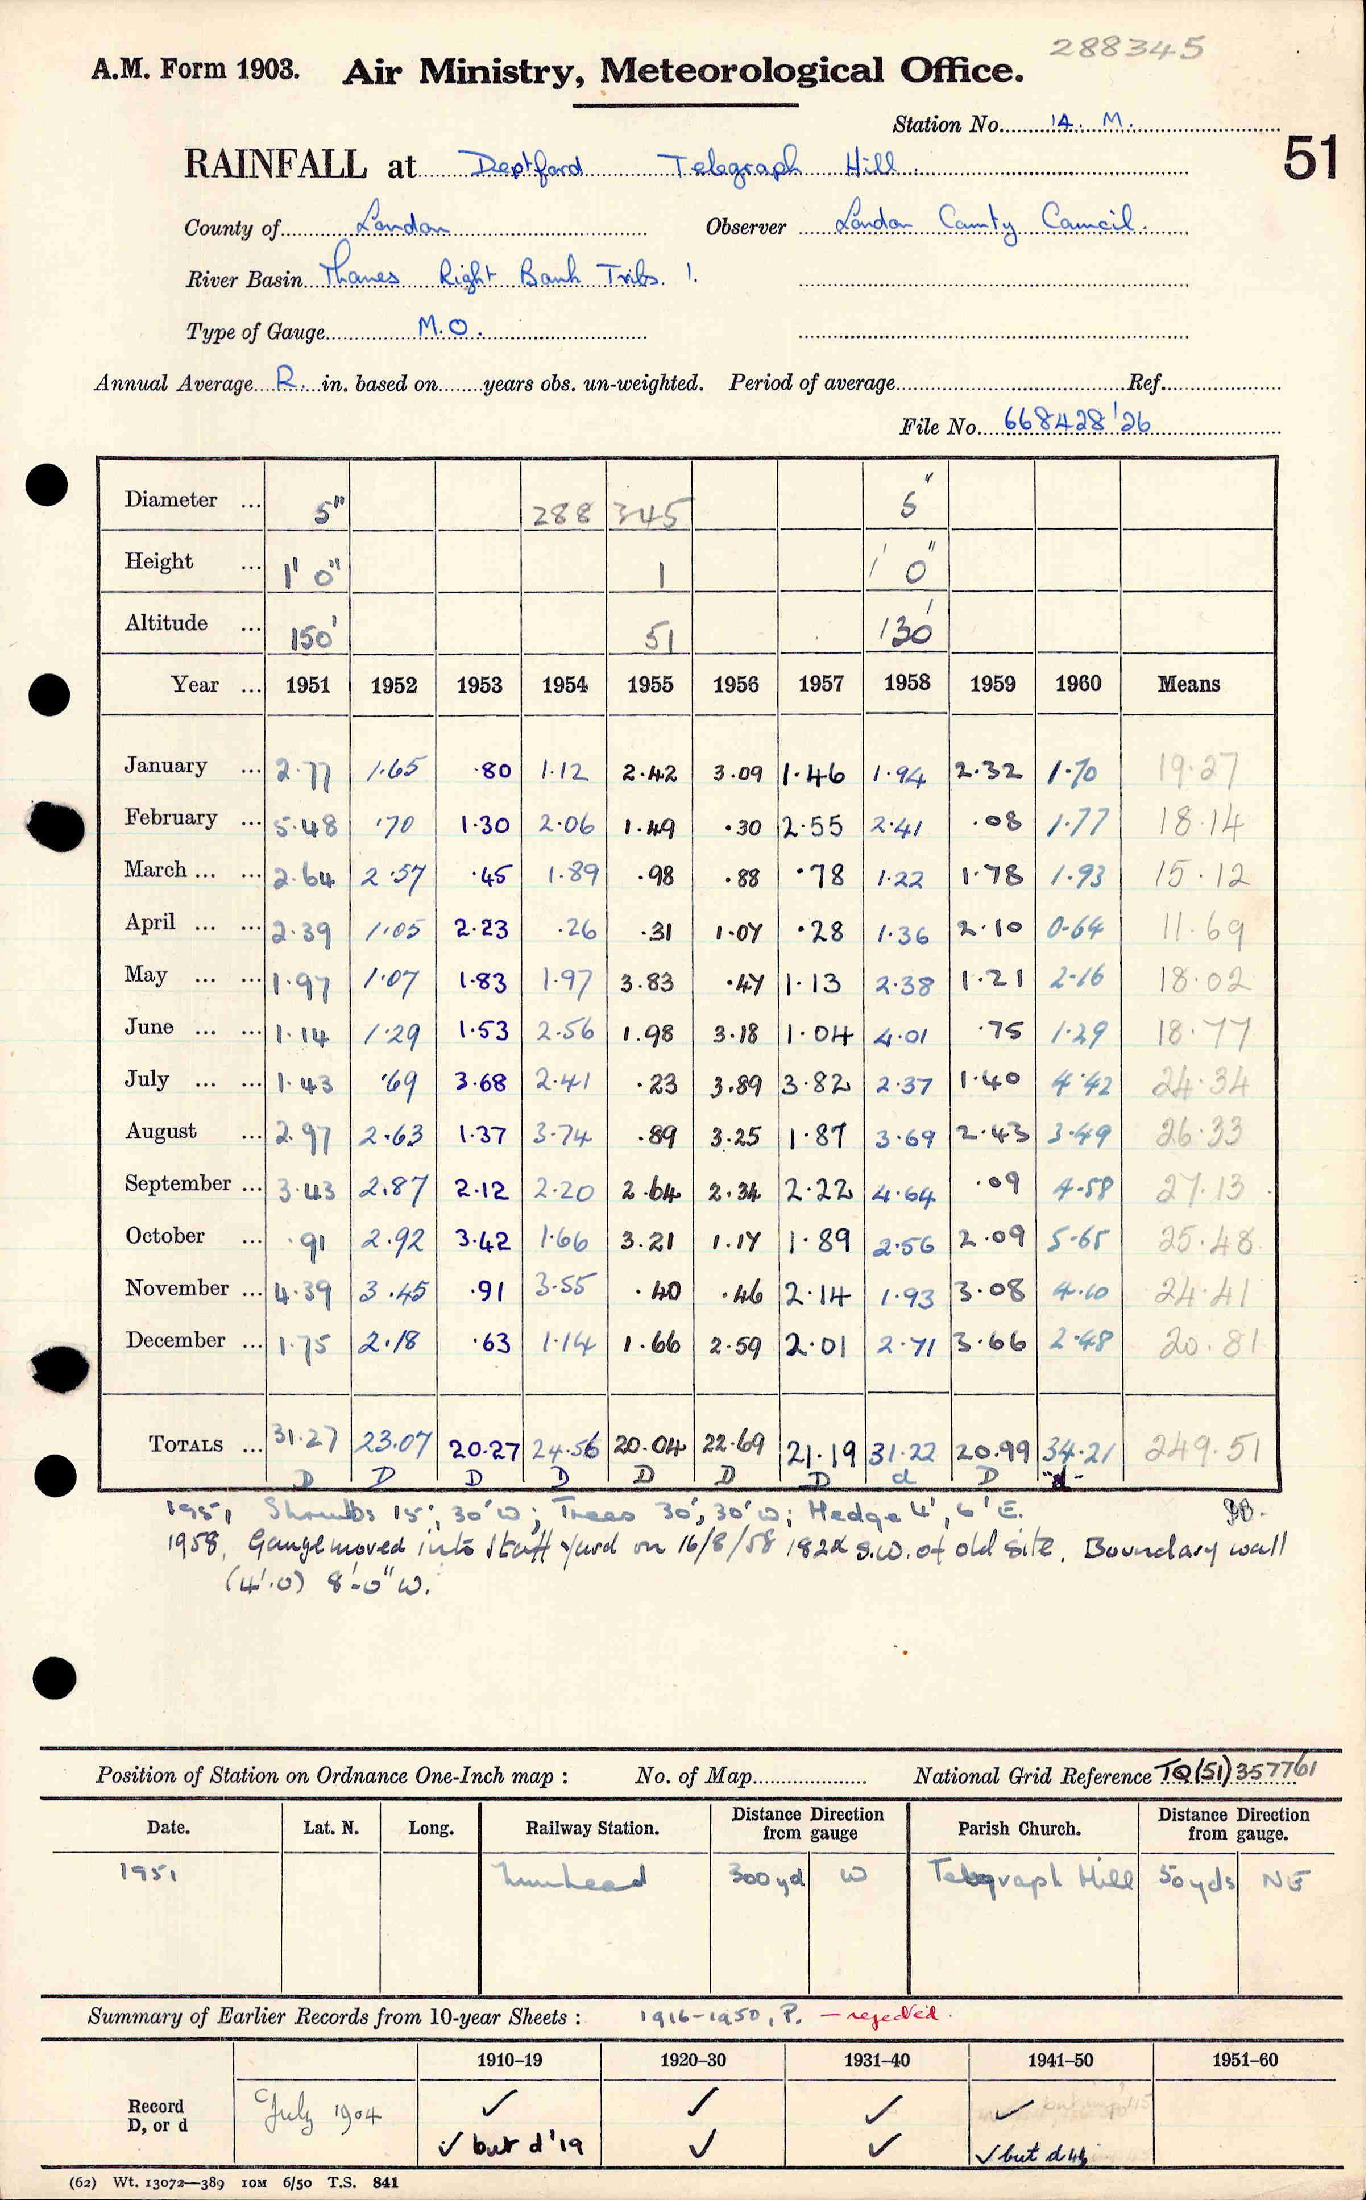 288345
A.M. Form 1903. Air Ministry, Meteorological Office.
Station No. 14. M.
51
RAINFALL at Deptford Telegraph Hill.
County of London Observer London County Council.
River Basin Thames Right Bank Tribs. 1.
Type of Gauge M.O.
Annual Average R. in. based on years obs. un-weighted. Period of average Ref.
File No. 668428/26
Diameter ... 5" 288 345 5"
Height ... 1' 0" 1 1' 0"
Altitude ... 150' 51 130'
Year ... 1951 1952 1953 1954 1955 1956 1957 1958 1959 1960 Means
January ... 2.77 1.65 .80 1.12 2.42 3.09 1.46 1.94 2.32 1.70 19.27
February ... 5.48 .70 1.30 2.06 1.49 .30 2.55 2.41 .08 1.77 18.14
March ... ... 2.64 2.57 .45 1.89 .98 .88 .78 1.22 1.78 1.93 15.12
April ... ... 2.39 1.05 2.23 .26 .31 1.07 .28 1.36 2.10 0.64 11.69
May ... ... 1.97 1.07 1.83 1.97 3.83 .47 1.13 2.38 1.21 2.16 18.02
June ... ... 1.14 1.29 1.53 2.56 1.98 3.18 1.04 4.01 .75 1.29 18.77
July ... ... 1.43 .69 3.68 2.41 .23 3.89 3.82 2.37 1.40 4.42 24.34
August ... 2.97 2.63 1.37 3.74 .89 3.25 1.87 3.69 2.43 3.49 26.33
September ... 3.43 2.87 2.12 2.20 2.64 2.34 2.22 4.64 .09 4.58 27.13
October ... .91 2.92 3.42 1.66 3.21 1.17 1.89 2.56 2.09 5.65 25.48
November ... 4.39 3.45 .91 3.55 .40 .46 2.14 1.93 3.08 4.10 24.41
December ... 1.75 2.18 .63 1.14 1.66 2.59 2.01 2.71 3.66 2.48 20.81
TOTALS ... 31.27 23.07 20.27 24.56 20.04 22.69 21.19 31.22 20.99 34.21 249.51
D D D D D D D d D d
1951 Shrubs 15', 30' W; Trees 30', 30' W; Hedge 4', 6' E.
1958, Gauge moved into Staff Yard on 16/8/58 182x S.W. of old site. Boundary wall
(4'.0) 8'-0" W.
Position of Station on Ordnance One-Inch map : No. of Map National Grid Reference TQ(51)357761
Date. Lat. N. Long. Railway Station. Distance Direction from gauge Parish Church. Distance Direction from gauge.
1951 Nunhead 300yd W Telegraph Hill 50yds NE
Summary of Earlier Records from 10-year Sheets : 1916-1950, P. - rejected.
1910-19 1920-30 1931-40 1941-50 1951-60
Record D, or d July 1904 ✓ ✓ ✓ ✓
✓ but d '19 ✓ ✓ ✓ but d 46
(62) Wt. 13072-389 10M 6/50 T.S. 841